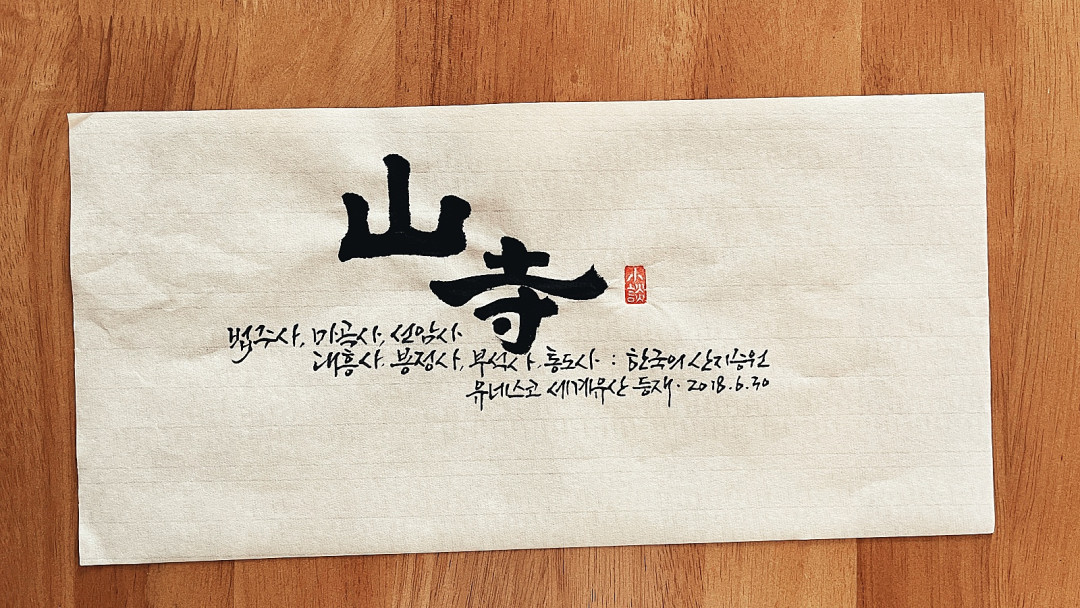 山
寺
小談
법주사, 마곡사, 선암사
대흥사, 봉정사, 부석사, 통도사 : 한국의 산지승원
유네스코 세계유산 등재. 2018.6.30